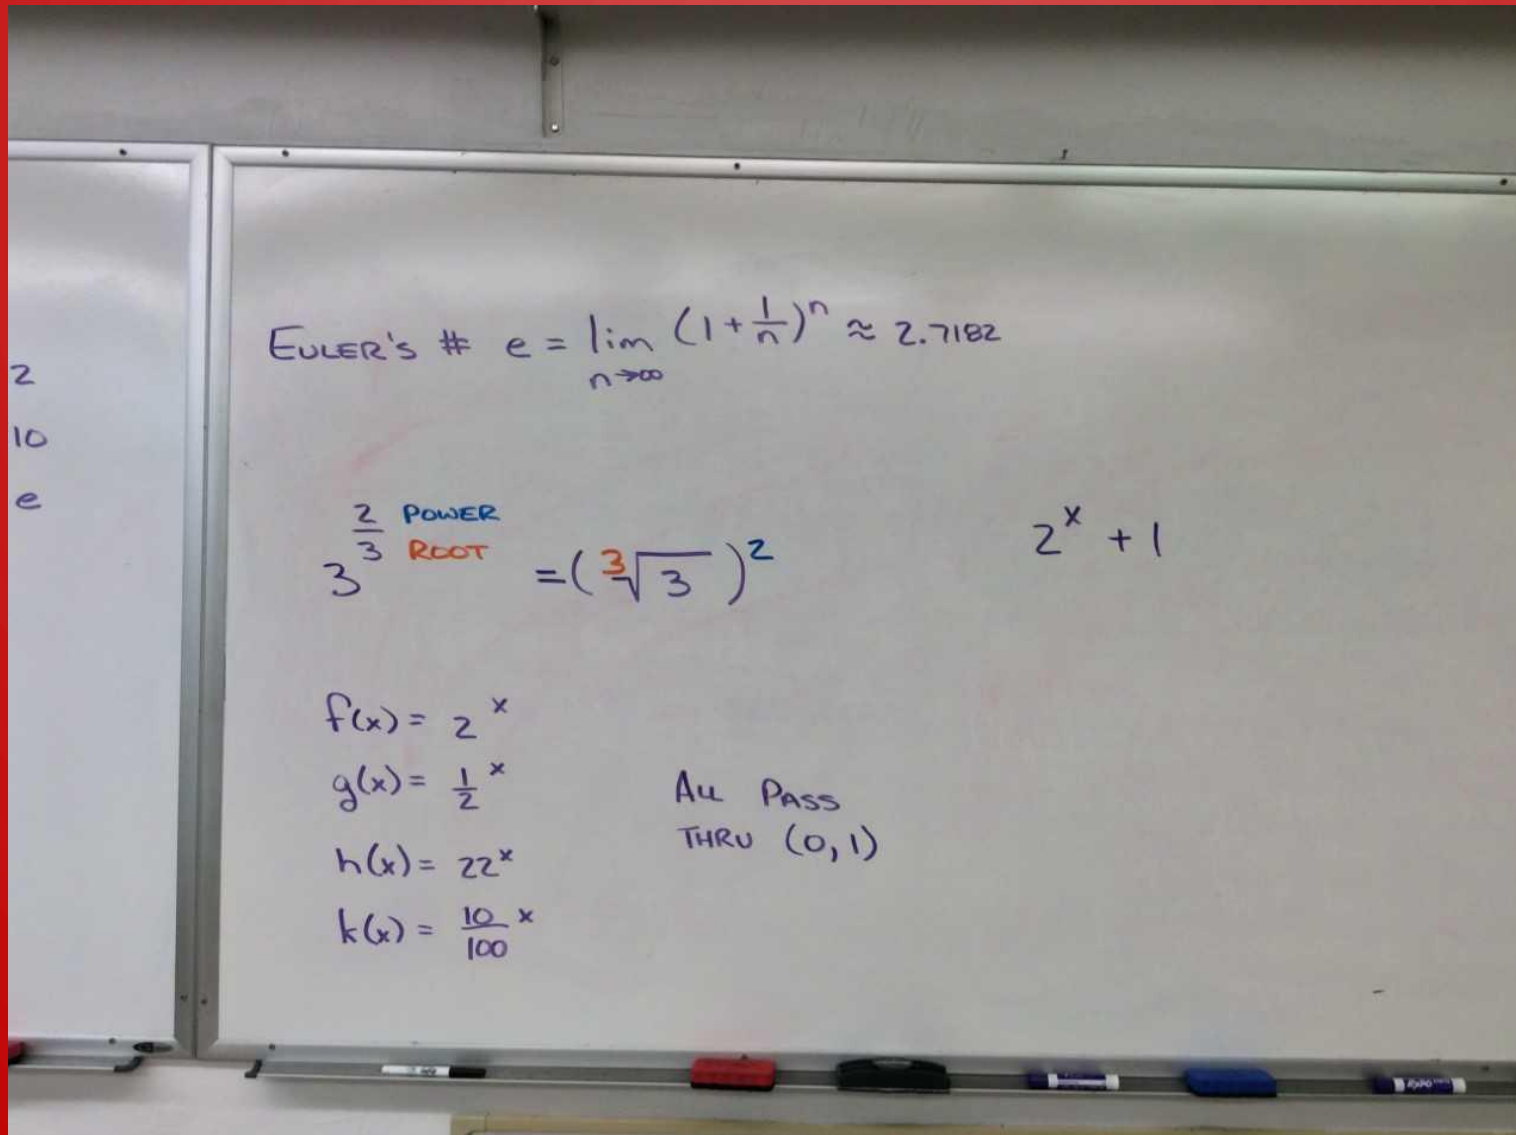 2
10
e
EULER'S # e = lim (1 + 1/n)^n ≈ 2.7182
n→∞
3^(2/3) POWER ROOT = (∛3)^2
2^x + 1
f(x) = 2^x
g(x) = 1/2^x
h(x) = 22^x
k(x) = 10/100^x
ALL PASS
THRU (0,1)
EXPO